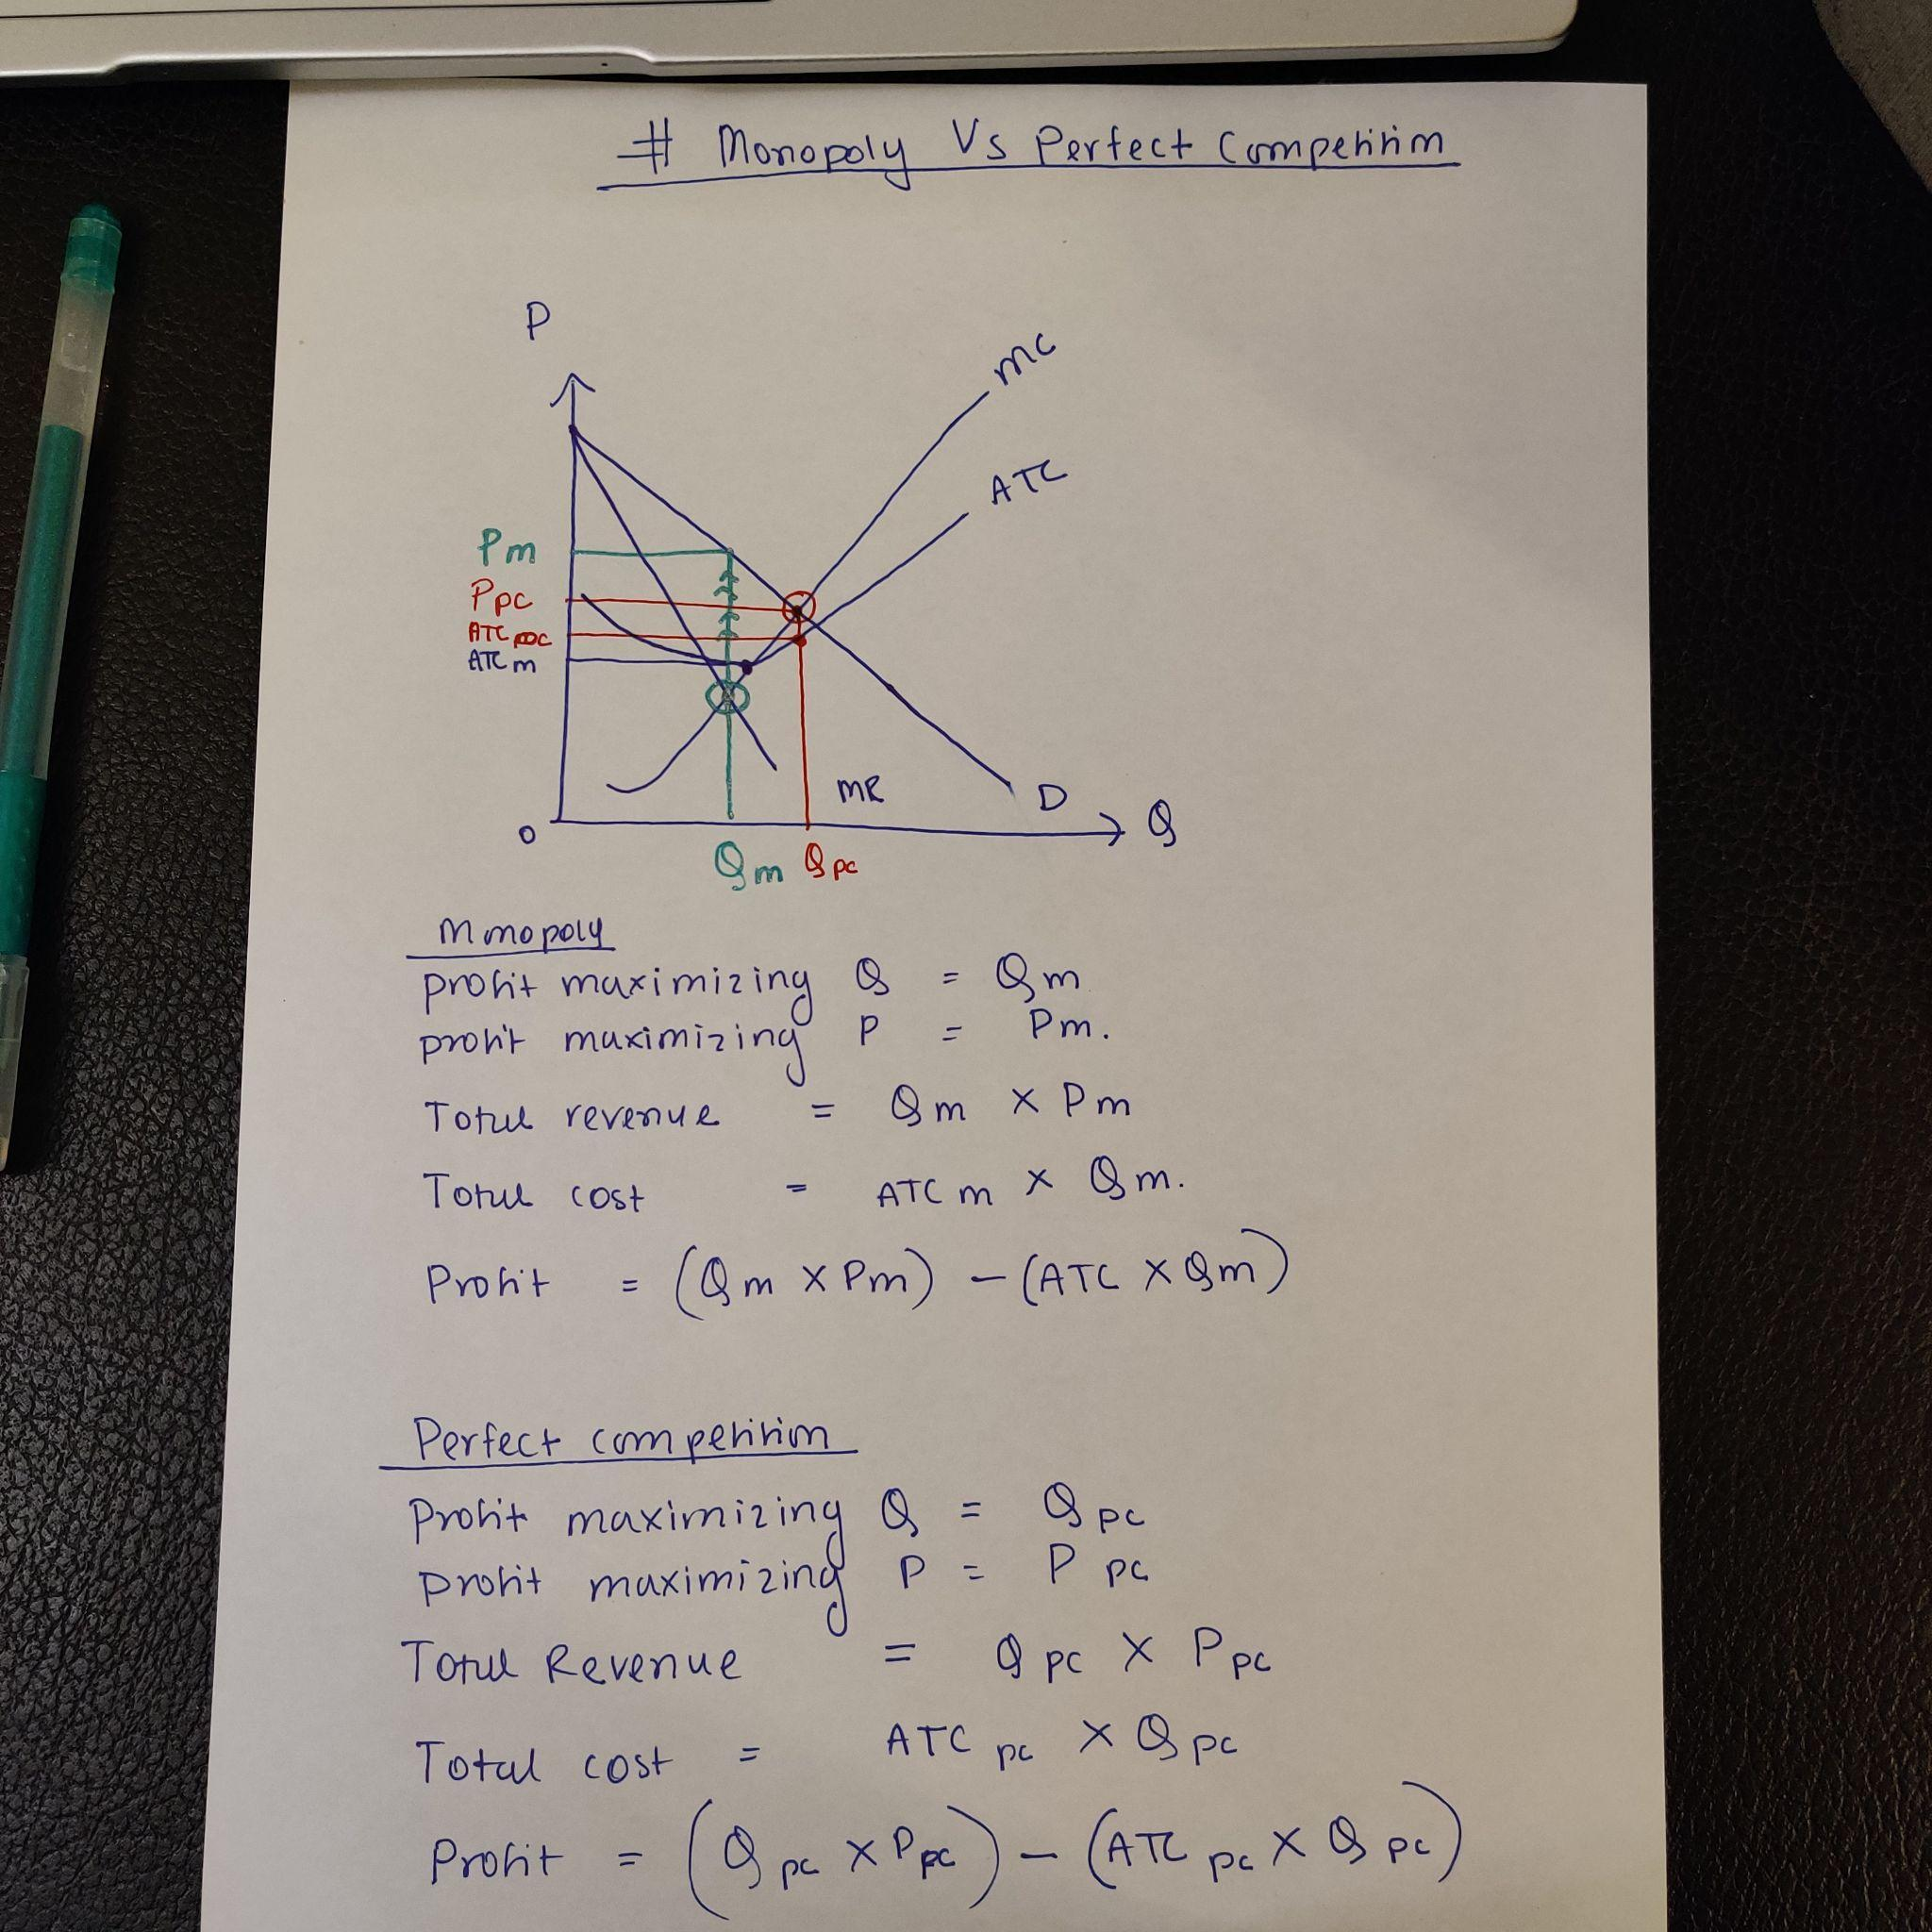 # Monopoly Vs Perfect Competition
P
MC
ATC
Pm
Ppc
ATC pc
ATC m
MR
D
Q
O
Qm Qpc
Monopoly
profit maximizing Q = Qm
profit maximizing P = Pm.
Total revenue = Qm × Pm
Total cost = ATC m × Qm.
Profit = (Qm × Pm) - (ATC × Qm)
Perfect competition
Profit maximizing Q = Q pc
profit maximizing P = P pc
Total Revenue = Q pc × P pc
Total cost = ATC pc × Q pc
Profit = (Q pc × P pc) - (ATC pc × Q pc)